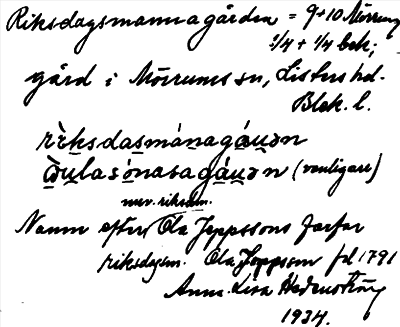 Riksdagsmannagården = 9+10 Mörrum
1/4 + 1/4 bek;
gård i Mörrums sn, Listers hd.
Blek. l.
rèksdasmánagáuən
ꝏulasónasagáuən (vanligare)
nuv. riksdm.
Namn efter Ola Jeppssons farfar
riksdagsm. Ola Jeppsson fd 1791
Anna-Lisa Hedenström
1934.